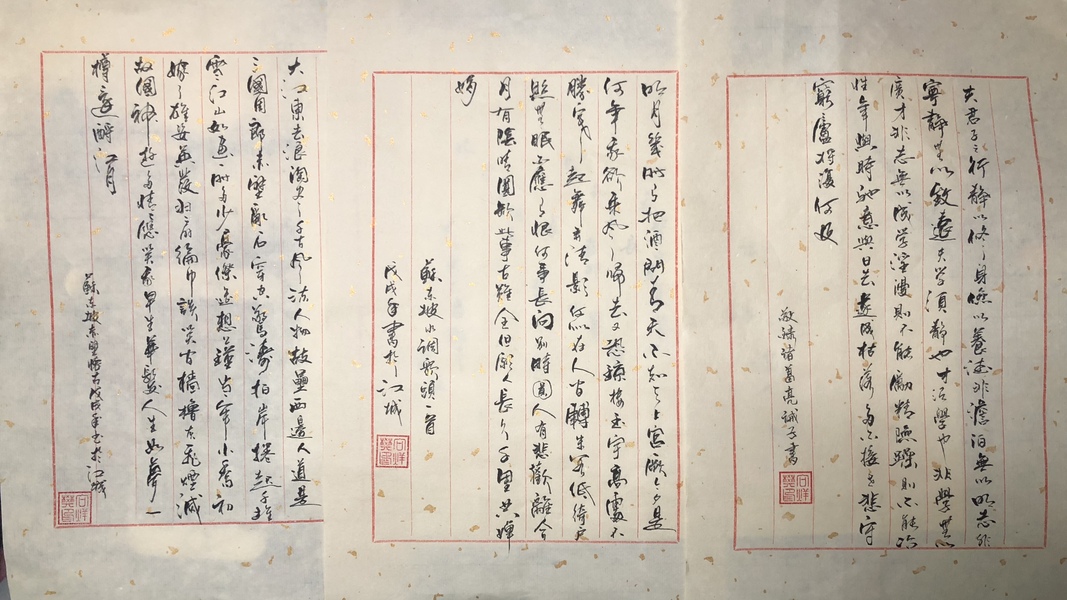 夫君子之行静以修身儉以養德非澹泊無以明志非
寧静無以致遠夫学須静也才須學也非學無以
廣才非志無以成学淫漫則不能勵精險躁則不能冶
性年與時馳意與日去遂成枯落多不接世悲守
窮廬将復何及
敬録諸葛亮誡子書
明月幾時有把酒問青天不知天上宫闕今夕是
何年我欲乘風歸去又恐瓊樓玉宇高處不
勝寒起舞弄清影何似在人間轉朱閣低綺户
照無眠不應有恨何事長向别時圓人有悲歡離合
月有陰晴圓缺此事古難全但願人長久千里共嬋
娟
蘇東坡水調歌頭一首
戊戌年書於江城
大江東去浪淘盡千古風流人物故壘西邊人道是
三國周郎赤壁亂石穿空驚濤拍岸捲起千堆
雪江山如畫一時多少豪傑遥想公瑾當年小喬初
嫁了雄姿英發羽扇綸巾談笑間檣櫓灰飛煙滅
故國神遊多情應笑我早生華髮人生如夢一
樽還酹江月
蘇東坡赤壁懷古戊戌年書於江城